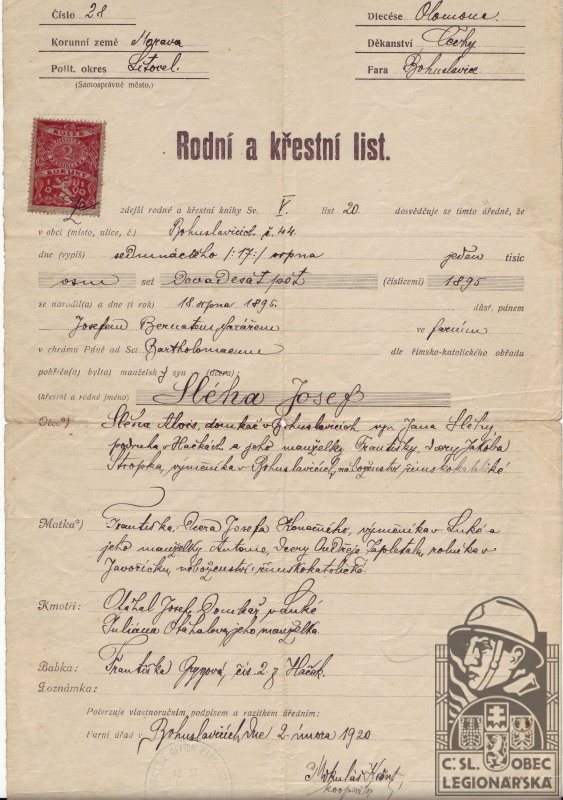 Číslo 28
Diecése Olomouc.
Korunní země Morava
Děkanství Čechy
Polit. okres Litovel.
Fara Bohuslavice
(Samosprávné město.)
KOLEK
2
KORUNY
Rodní a křestní list.
zdejší rodné a křestní knihy Sv. V. list 20. dosvědčuje se tímto úředně, že
v obci (místo, ulice, č.) Bohuslavicích č. 44.
dne (vypiš) sedmnáctého /:17:/ srpna jeden tisíc
osm set devadesát pět (číslicemi) 1895
se narodil(a) a dne (i rok) 18. srpna 1895. důst. pánem
Josefem Bernatem farářem ve farním
v chrámu Páně ad Sct. Bartholomaeum dle římsko-katolického obřadu
pokřtěn (byl)a) manželský syn (dcera):
(křestní a rodné jméno) Sléha Josef
Otec) Sléha Alois, domkář v Bohuslavicích, syn Jana Sléhy,
podruha v Hačkách a jeho manželky Františky, dcery Jakoba
Stropka, výměnkáře v Bohuslavicích, náboženství římskokatolické
Matka) Františka, dcera Josefa Konečného, výměnkáře v Luké a
jeho manželky Antonie, dcery Ondřeje Zapletala, rolníka v
Javoříčku, náboženství římskokatolické.
Kmotři: Otáhal Josef, Domkář v Luké
Juliána Otáhalova, jeho manželka.
Babka: Františka čís. 2. z Haček.
Poznámka:
Potvrzuje vlastnoručním podpisem a razítkem úředním:
Farní úřad v Bohuslavicích, dne 2. února 1920
Mikuláš
kooperátor
Č.SL. OBEC
LEGIONÁŘSKÁ